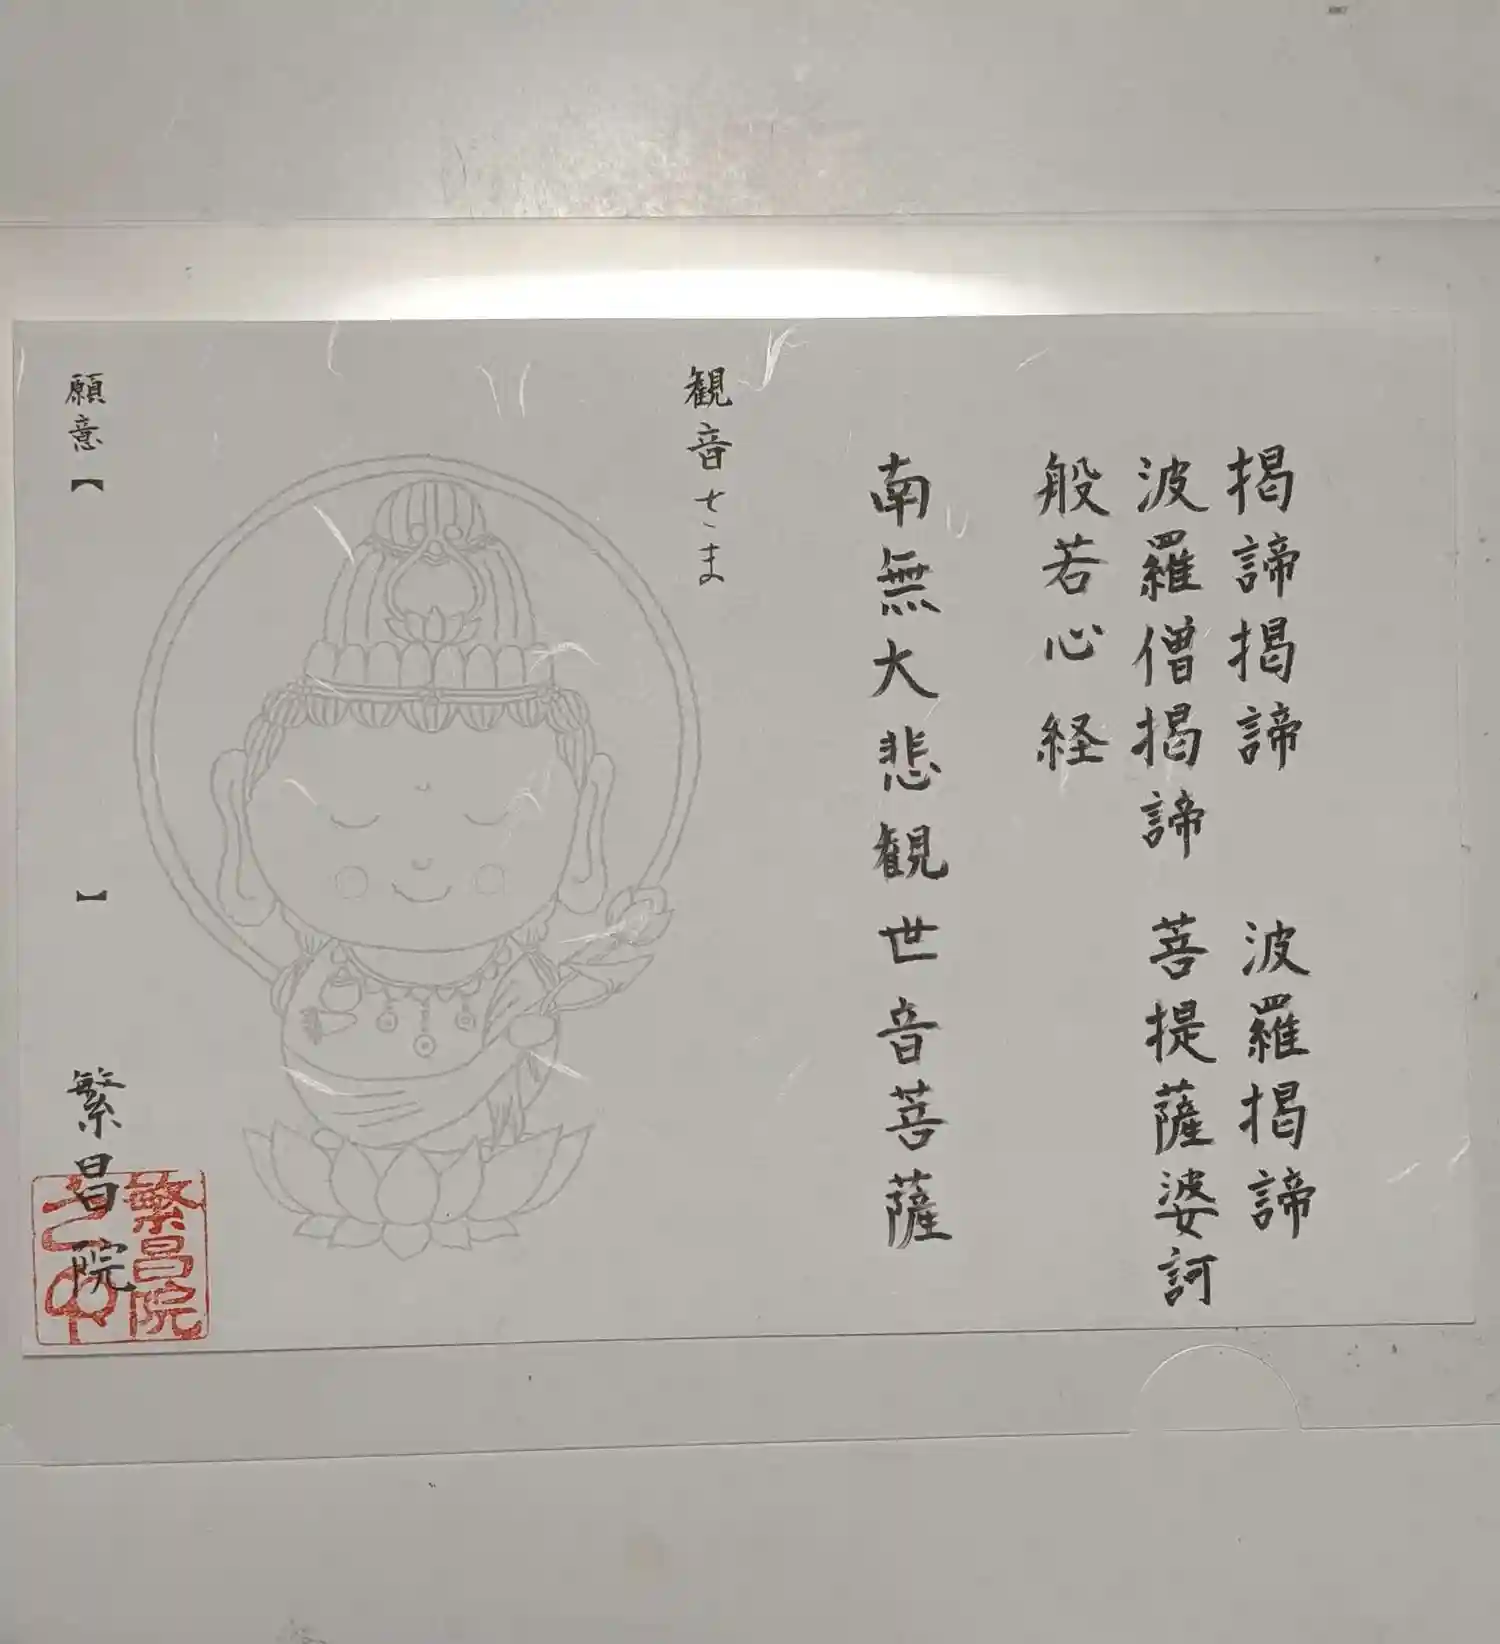 掲諦掲諦　波羅掲諦
波羅僧掲諦　菩提薩婆訶
般若心経
南無大悲観世音菩薩
観音さま
願意【　】
繁昌院
繁昌院